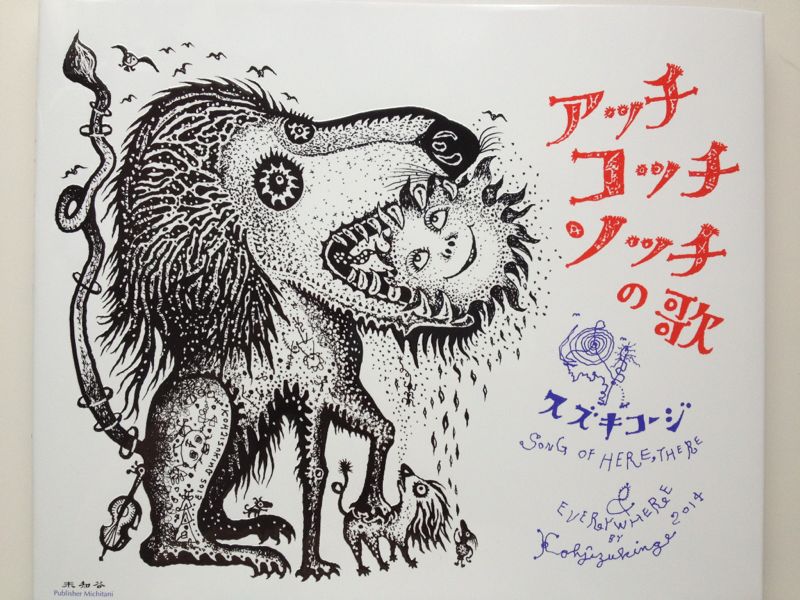 アッチ
コッチ
ソッチ
の歌
スズキコージ
SONG OF HERE, THERE
&
EVERYWHERE
BY
2014
未知谷
Publisher Michitani